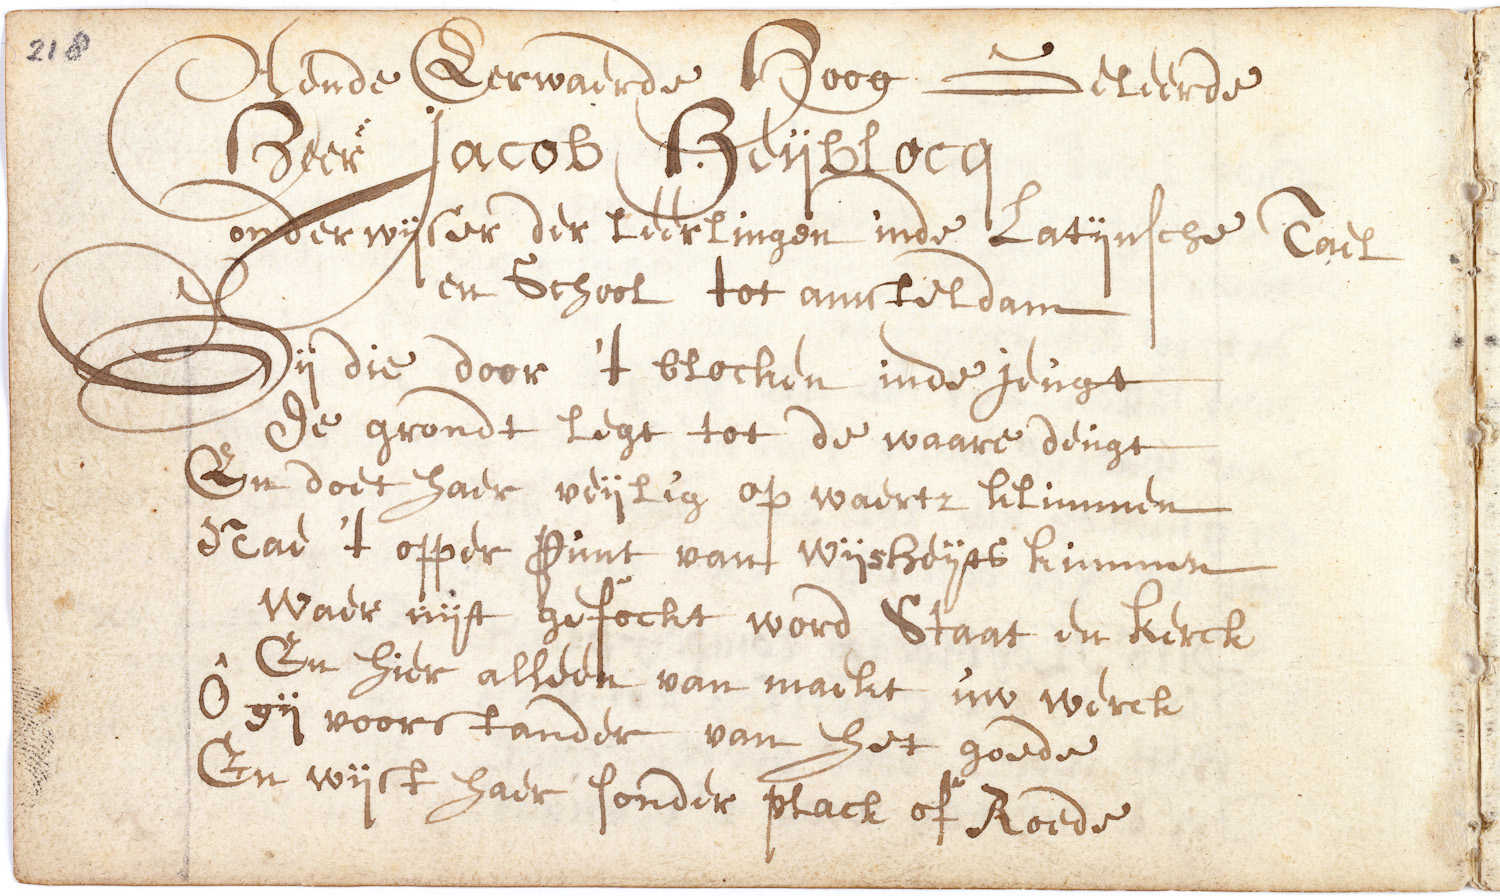 218
Aende Eerwaerde Hoog Geleerde
Heerr Jacob Heijblocq
onderwijser der leerlingen inde Latijnsche Tael
en School tot amsteldam
Gij die door 't blocken inde jeugt
De grondt legt tot de waare deugt
En doet haer veijlig op waerts klimmen
Nae 't opper punt van wijsheijts kimmen
Waer uijt gesockt word Staat en kerck
En hier alleen van maekt uw werck
Ô gij voorstander van het goede
En wijst haer sonder plack of Roede